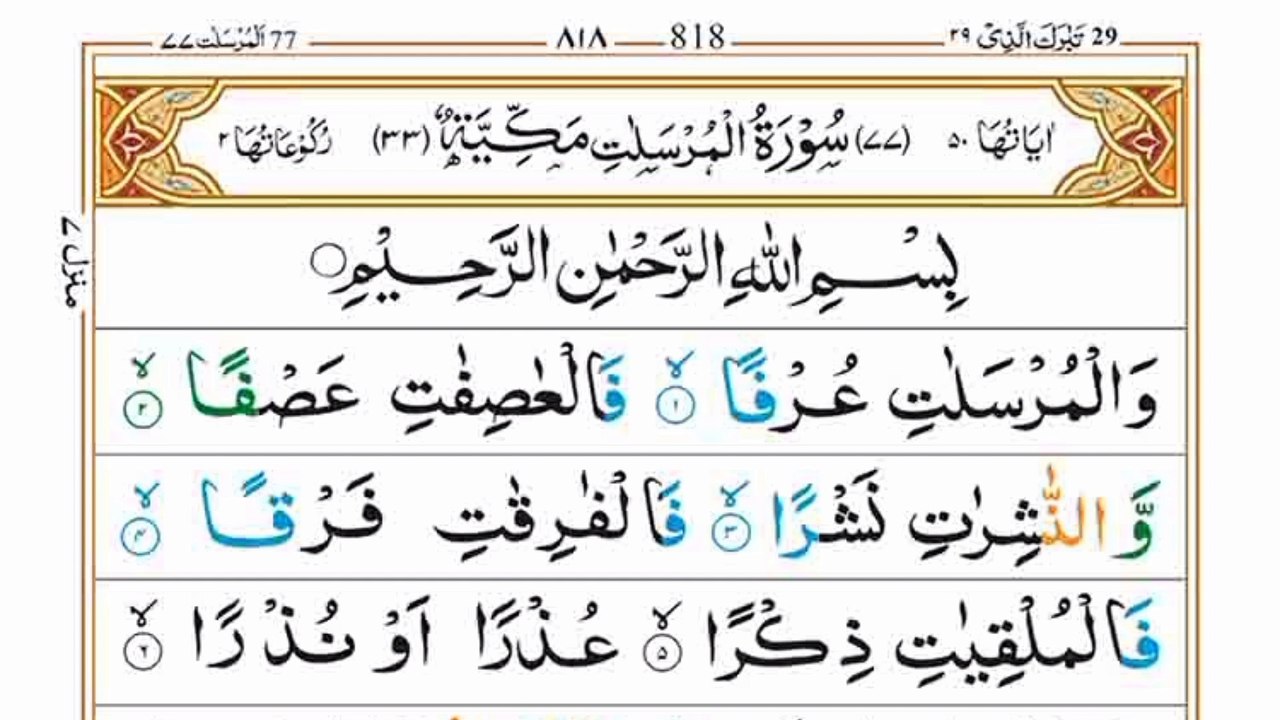 29 تَبٰرَكَ الَّذِیْ ٢٩ 818 ٨١٨ 77 اَلْمُرْسَلٰت ٧٧
اٰیَاتُهَا ٥٠ (٧٧) سُوْرَةُ الْمُرْسَلٰتِ مَكِّیَّةٌ (٣٣) رُكُوْعَاتُهَا ٢
منزل ٧
بِسْمِ اللّٰهِ الرَّحْمٰنِ الرَّحِیْمِ
وَالْمُرْسَلٰتِ عُرْفًا ۙ‏﴿١﴾ فَالْعٰصِفٰتِ عَصْفًا ۙ‏﴿٢﴾
وَّ النّٰشِرٰتِ نَشْرًا ۙ‏﴿٣﴾ فَالْفٰرِقٰتِ فَرْقًا ۙ‏﴿٤﴾
فَالْمُلْقِیٰتِ ذِكْرًا ۙ‏﴿٥﴾ عُذْرًا اَوْ نُذْرًا ۙ‏﴿٦﴾